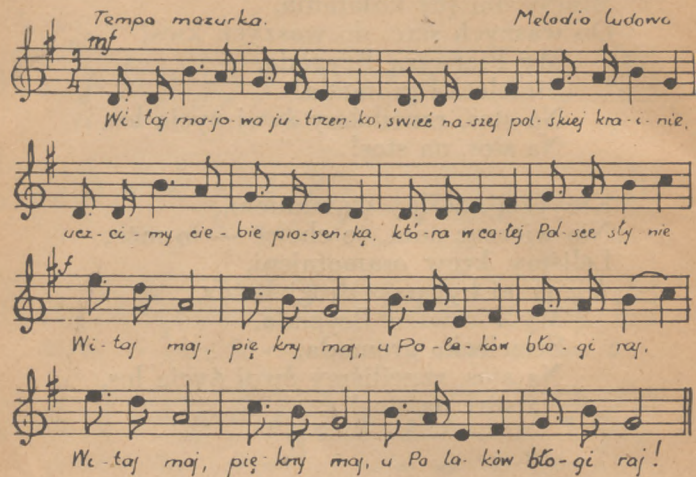 Tempo mazurka. Melodia ludowa
mf
3
4
Wi-taj ma-jo-wa ju-trzen-ko, świeć na-szej pol-skiej kra-i-nie,
ucz-ci-my cie-bie pio-sen-ką, któ-ra w ca-łej Pol-sce sły-nie
f
Wi-taj maj, pię kny maj, u Po-la-ków bło-gi raj,
Wi-taj maj, pię-kny maj, u Po la-ków bło-gi raj!